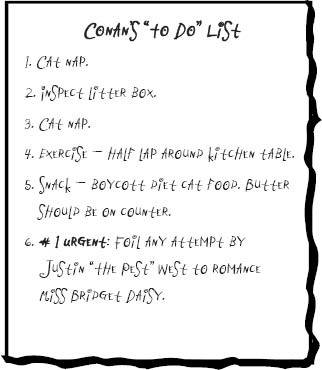 Conan's "To Do" List
1. Cat nap.
2. Inspect litter box.
3. Cat nap.
4. Exercise — half lap around kitchen table.
5. Snack — boycott diet cat food. Butter
should be on counter.
6. #1 urgent: Foil any attempt by
Justin "the Pest" West to romance
Miss Bridget Daisy.